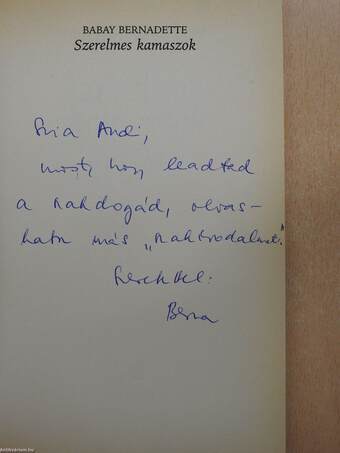 BABAY BERNADETTE
Szerelmes kamaszok
Szia Andi,
most, hogy leadtad
a szakdogád, olvas-
hatsz más „szakirodalmat."
Szeretettel:
Berna